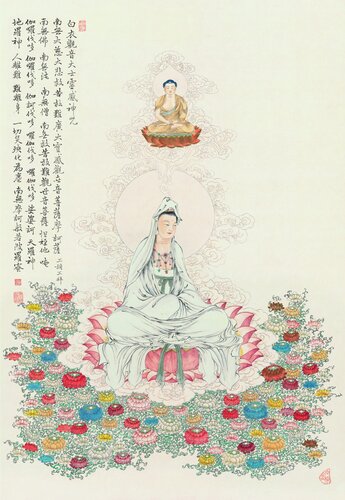 白衣觀音大士靈感神咒
南無大慈大悲救苦救難廣大靈感觀世音菩薩摩訶薩 三稱三拜
南無佛 南無法 南無僧 南無救苦救難觀世音菩薩 怛他 唵
伽囉伐哆 伽囉伐哆 伽訶伐哆 囉伽伐哆 囉伽伐哆 娑婆訶 天羅神
地羅神 人離難 難離身 一切災殃化為塵 南無摩訶般若波羅蜜